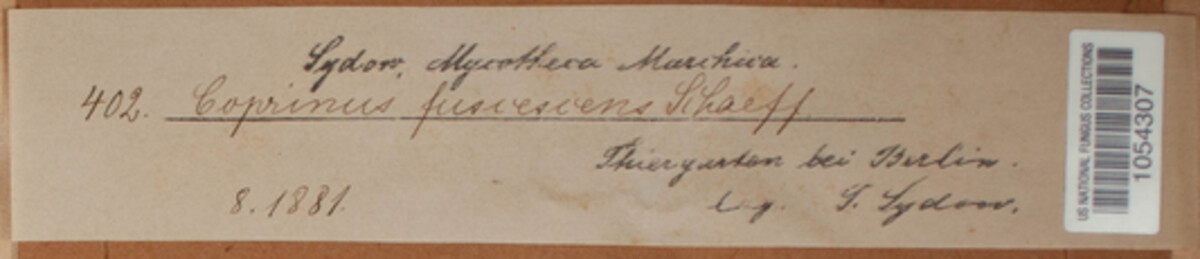 Sydow, Mycotheca Marchica.
402. Coprinus fuscescens Schaeff
Thiergarten bei Berlin.
8. 1881. leg. P. Sydow.
US NATIONAL FUNGUS COLLECTIONS
1054307